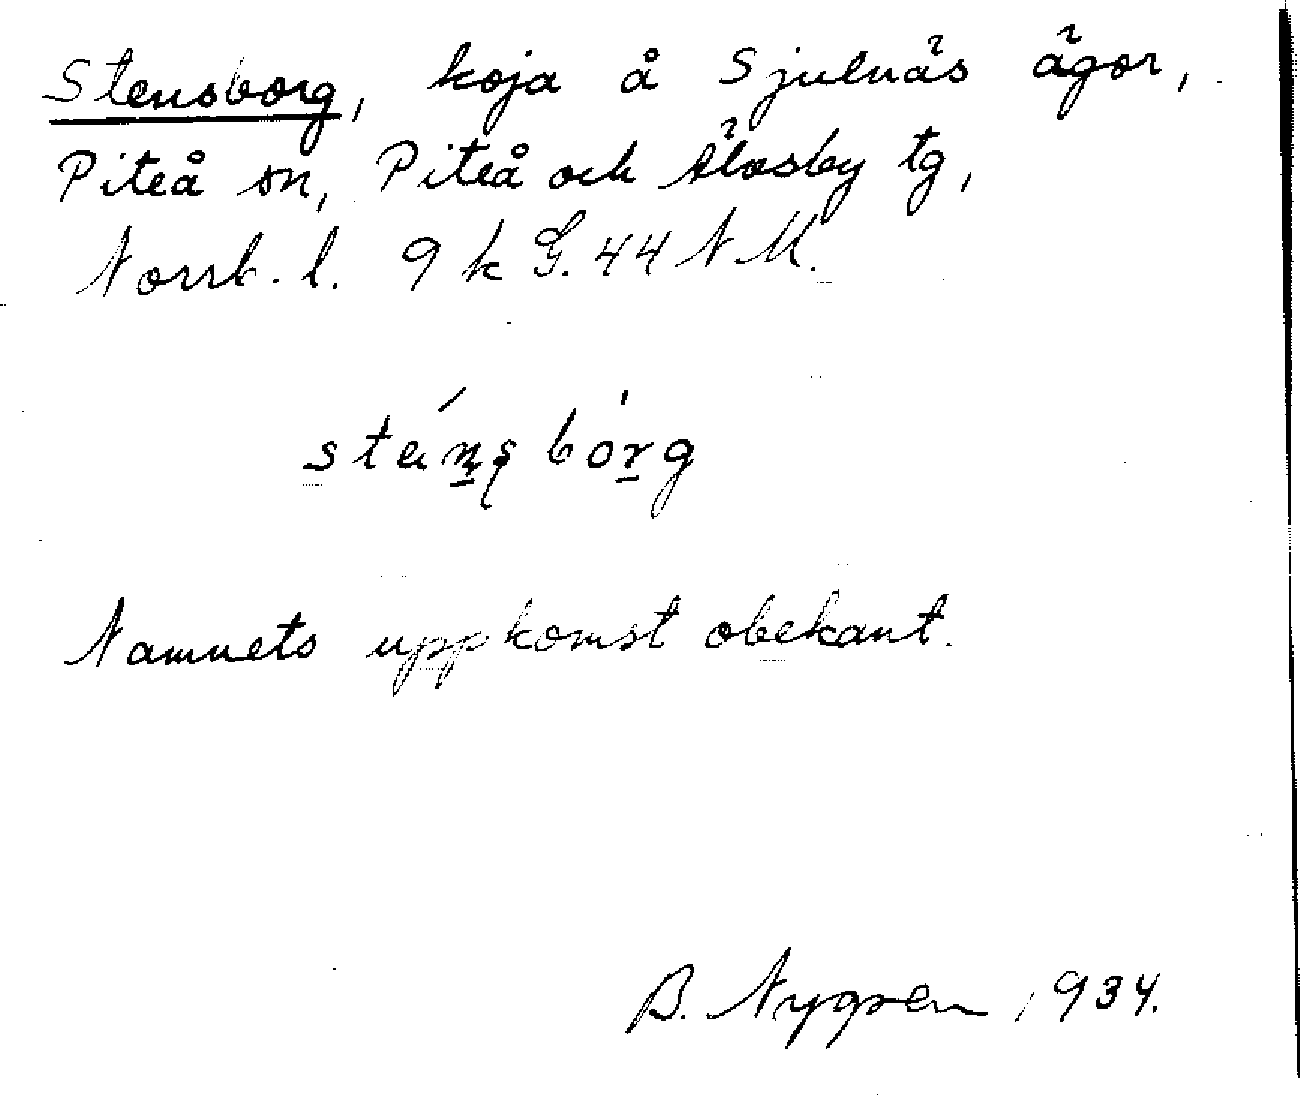 Stensborg, koja å Sjulnäs ägor,
Piteå sn, Piteå och Älvsby tg,
Norrb. l. 9 k G. 44 N M.
stéi̇nsbórg
Namnets uppkomst obekant.
B. Nygren 1934.